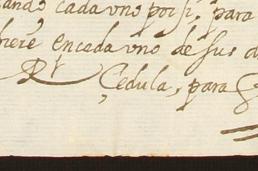 cada vno por si, para
en cada vno de sus
Rl
Cedula, para